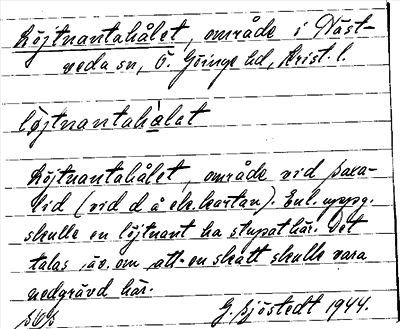 Löjtnantahålet, område i Näst-
veda sn, Ö. Göinge hd, Krist. l.
löjtnantahålet
Löjtnantahålet, område vid Saxa-
lid (vid d å ek. kartan). Enl. uppg.
skulle en löjtnant ha stupat här. Det
talas äv. om, att en skatt skulle vara
nedgrävd här.
G. Sjöstedt 1944.